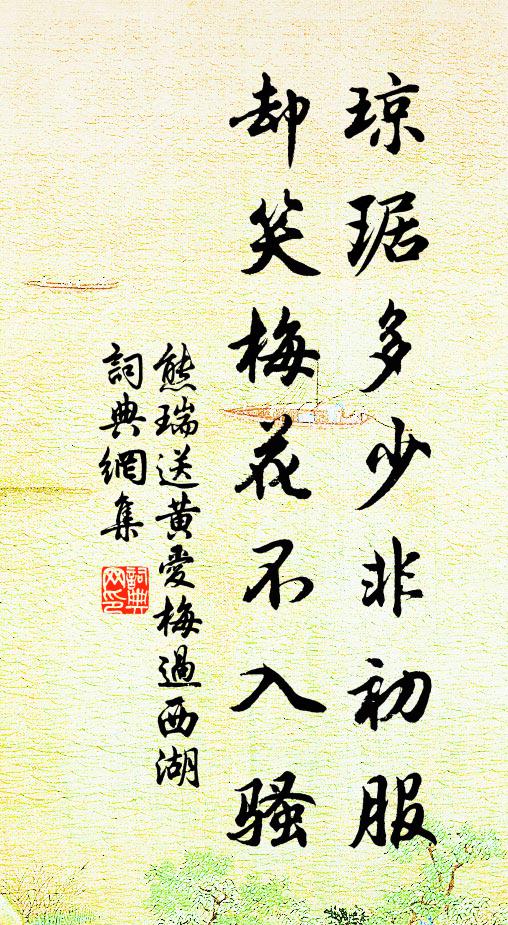 琼琚多少非初服
却笑梅花不入骚
熊瑞送黄愛梅過西湖
詞典網集
詞典網印